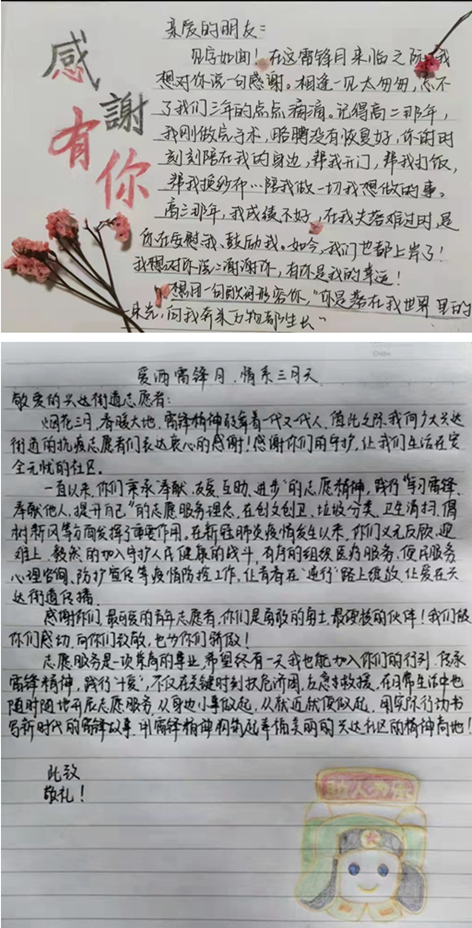 感
謝
有
你
亲爱的朋友：
见字如面！在这雷锋月来临之际，我
想对你说一句感谢。相逢一见太匆匆，忘不
了我们三年的点点滴滴。记得高二那年，
我刚做完手术，胳膊没有恢复好，你时时
刻刻陪在我的身边，帮我开门，帮我打饭，
帮我换纱布…陪我做一切我想做的事。
高三那年，我成绩不好，在我失落难过时，是
你在安慰我、鼓励我。如今，我们也都上岸了！
我想对你说：谢谢你，有你是我的幸运！
想用一句歌词形容你，“你是落在我世界里的
一束光，向我奔来万物都生长”
爱洒雷锋月，情系三月天
敬爱的兴达街道志愿者：
烟花三月，春暖大地，雷锋精神鼓舞着一代又一代人，值此之际，我向广大兴达
街道的抗疫志愿者们表达衷心的感谢！感谢你们的守护，让我们生活在安
全无忧的社区。
一直以来，你们秉承“奉献、友爱、互助、进步”的志愿精神，践行“学习雷锋、
奉献他人、提升自己”的志愿服务理念，在创文创卫、垃圾分类、卫生清扫、倡
树新风等方面发挥了重要作用。在新冠肺炎疫情发生以来，你们义无反顾、迎
难上，毅然的加入守护人民健康的战斗，有序的组织医疗服务、便民服务、
心理咨询、防护宣传等疫情防控工作，让青春在“逆行”路上绽放，让爱在兴
达街道传播。
感谢你们，最可爱的青年志愿者，你们是勇敢的勇士，最硬核的伙伴！我们被
你们感动，向你们致敬，也为你们骄傲！
志愿服务是一项崇高的事业，希望终有一天我也能加入你们的行列，传承
雷锋精神，践行，不仅在关键时刻扶危济困、应急救援，在日常生活中也
随时随地开展志愿服务，从身边小事做起，从就近就便做起，用实际行动书
写新时代的雷锋故事，用雷锋精神构筑起幸福美丽的兴达社区的精神高地！
此致
敬礼！